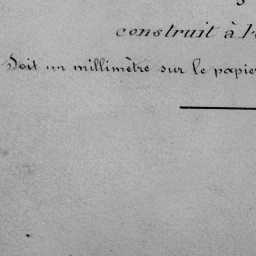 construit à l'
Soit un millimètre sur le papier